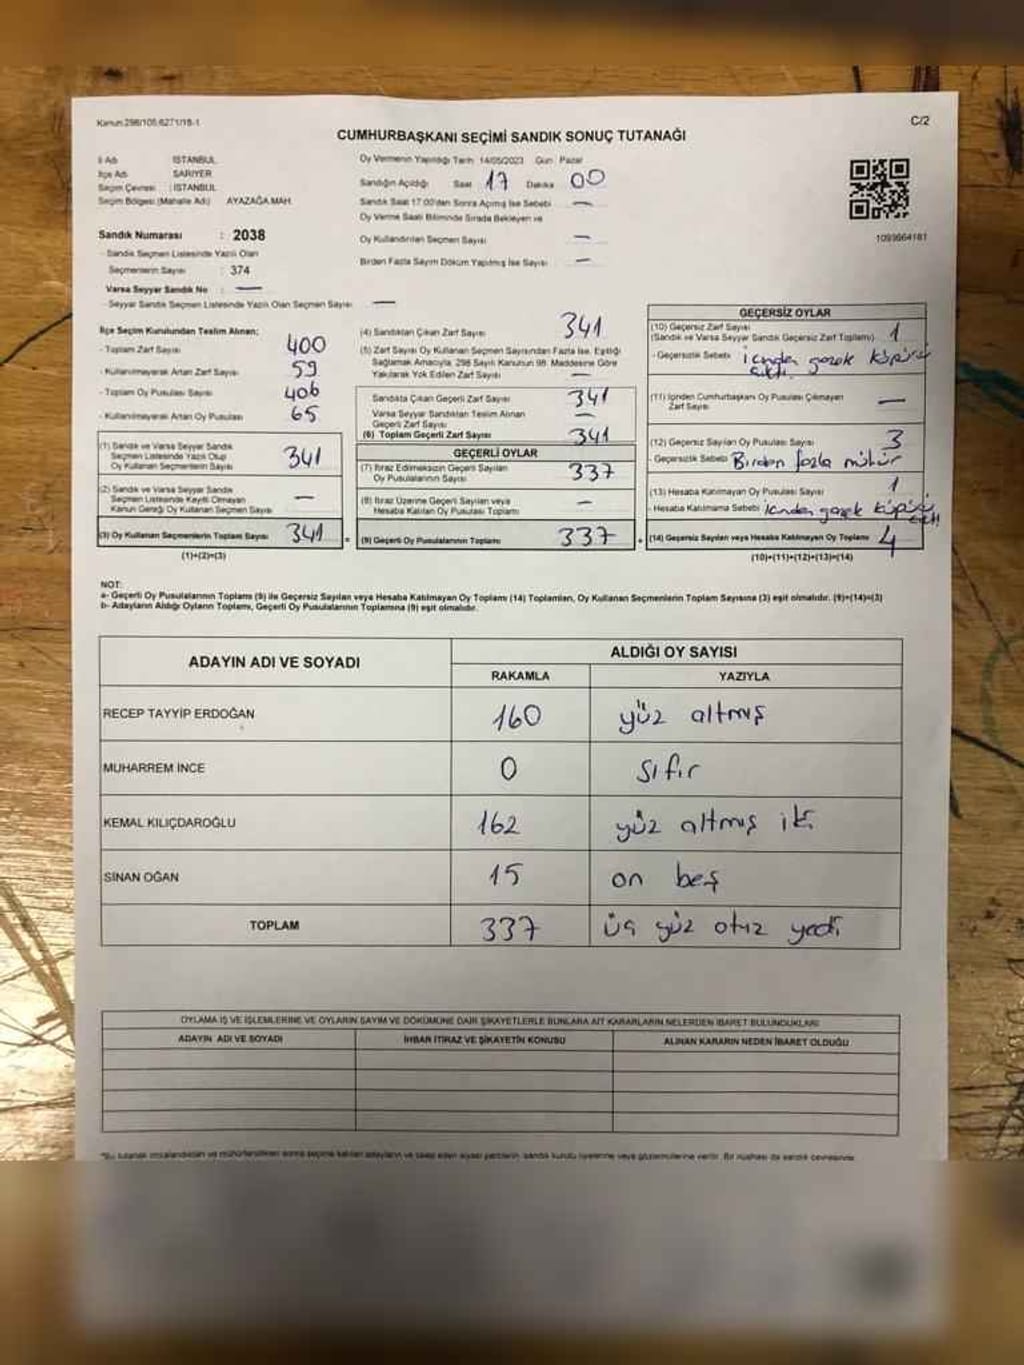 Kanun:298/105,6271/18-1
C/2
CUMHURBAŞKANI SEÇİMİ SANDIK SONUÇ TUTANAĞI
İl Adı İSTANBUL
İlçe Adı SARIYER
Seçim Çevresi : İSTANBUL
Seçim Bölgesi (Mahalle Adı) AYAZAĞA MAH.
Sandık Numarası : 2038
- Sandık Seçmen Listesinde Yazılı Olan
Seçmenlerin Sayısı : 374
Varsa Seyyar Sandık No : —
- Seyyar Sandık Seçmen Listesinde Yazılı Olan Seçmen Sayısı —
Oy Vermenin Yapıldığı Tarih 14/05/2023 Gün Pazar
Sandığın Açıldığı Saat 17 Dakika 00
Sandık Saat 17.00'dan Sonra Açılmış İse Sebebi —
Oy Verme Saati Bitiminde Sırada Bekleyen ve
Oy Kullandırılan Seçmen Sayısı —
Birden Fazla Sayım Döküm Yapılmış İse Sayısı —
1093664181
İlçe Seçim Kurulundan Teslim Alınan;
- Toplam Zarf Sayısı 400
- Kullanılmayarak Artan Zarf Sayısı 59
- Toplam Oy Pusulası Sayısı 406
- Kullanılmayarak Artan Oy Pusulası 65
(1) Sandık ve Varsa Seyyar Sandık
Seçmen Listesinde Yazılı Olup
Oy Kullanan Seçmenlerin Sayısı 341
(2) Sandık ve Varsa Seyyar Sandık
Seçmen Listesinde Kayıtlı Olmayan
Kanun Gereği Oy Kullanan Seçmen Sayısı —
(3) Oy Kullanan Seçmenlerin Toplam Sayısı 341
(1)+(2)=(3)
(4) Sandıktan Çıkan Zarf Sayısı 341
(5) Zarf Sayısı Oy Kullanan Seçmen Sayısından Fazla İse, Eşitliği
Sağlamak Amacıyla, 298 Sayılı Kanunun 98. Maddesine Göre
Yakılarak Yok Edilen Zarf Sayısı —
Sandıkta Çıkan Geçerli Zarf Sayısı 341
Varsa Seyyar Sandıktan Teslim Alınan
Geçerli Zarf Sayısı —
(6) Toplam Geçerli Zarf Sayısı 341
GEÇERLİ OYLAR
(7) İtiraz Edilmeksizin Geçerli Sayılan
Oy Pusulalarının Sayısı 337
(8) İtiraz Üzerine Geçerli Sayılan veya
Hesaba Katılan Oy Pusulası Toplamı —
(9) Geçerli Oy Pusulalarının Toplamı 337
GEÇERSİZ OYLAR
(10) Geçersiz Zarf Sayısı
(Sandık ve Varsa Seyyar Sandık Geçersiz Zarf Toplamı) 1
- Geçersizlik Sebebi içinden gözek
çıktı
(11) İçinden Cumhurbaşkanı Oy Pusulası Çıkmayan
Zarf Sayısı —
(12) Geçersiz Sayılan Oy Pusulası Sayısı 3
- Geçersizlik Sebebi Birden fazla mühür
(13) Hesaba Katılmayan Oy Pusulası Sayısı 1
- Hesaba Katılmama Sebebi içinden gözek
çıktı
(14) Geçersiz Sayılan veya Hesaba Katılmayan Oy Toplamı 4
(10)+(11)+(12)+(13)=(14)
NOT:
a- Geçerli Oy Pusulalarının Toplamı (9) ile Geçersiz Sayılan veya Hesaba Katılmayan Oy Toplamı (14) Toplamları, Oy Kullanan Seçmenlerin Toplam Sayısına (3) eşit olmalıdır. (9)+(14)=(3)
b- Adayların Aldığı Oyların Toplamı, Geçerli Oy Pusulalarının Toplamına (9) eşit olmalıdır.
ADAYIN ADI VE SOYADI
ALDIĞI OY SAYISI
RAKAMLA YAZIYLA
RECEP TAYYİP ERDOĞAN 160 yüz altmış
MUHARREM İNCE 0 sıfır
KEMAL KILIÇDAROĞLU 162 yüz altmış iki
SİNAN OĞAN 15 on beş
TOPLAM 337 üç yüz otuz yedi
OYLAMA İŞ VE İŞLEMLERİNE VE OYLARIN SAYIM VE DÖKÜMÜNE DAİR ŞİKAYETLERLE BUNLARA AİT KARARLARIN NELERDEN İBARET BULUNDUKLARI
ADAYIN ADI VE SOYADI İHBAR İTİRAZ VE ŞİKAYETİN KONUSU ALINAN KARARIN NEDEN İBARET OLDUĞU